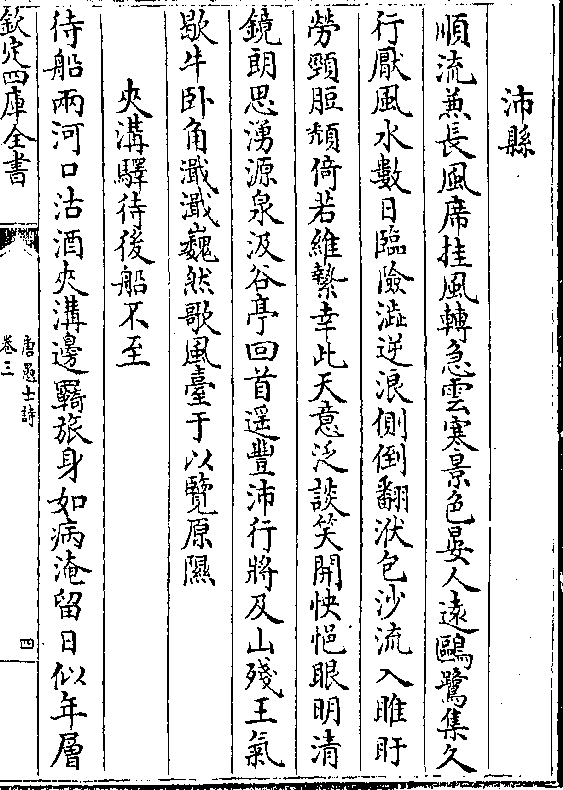 沛縣
順流兼長風席挂風轉急雲寒景色晏人遠鷗鷺集久
行厭風水數日臨險澁逆浪側倒翻洑包沙流入睢盱
勞頸脰頽倚若維縶幸此天意泛談笑開怏悒眼明清
鏡朗思湧源泉汲谷亭回首遥豐沛行將及山殘王氣
歇牛卧角濈濈巍然歌風臺于以覽原隰
夾溝驛待後船不至
待船兩河口沽酒夾溝邊羇旅身如病淹留日似年層
欽定四庫全書
唐愚士詩
卷三
四